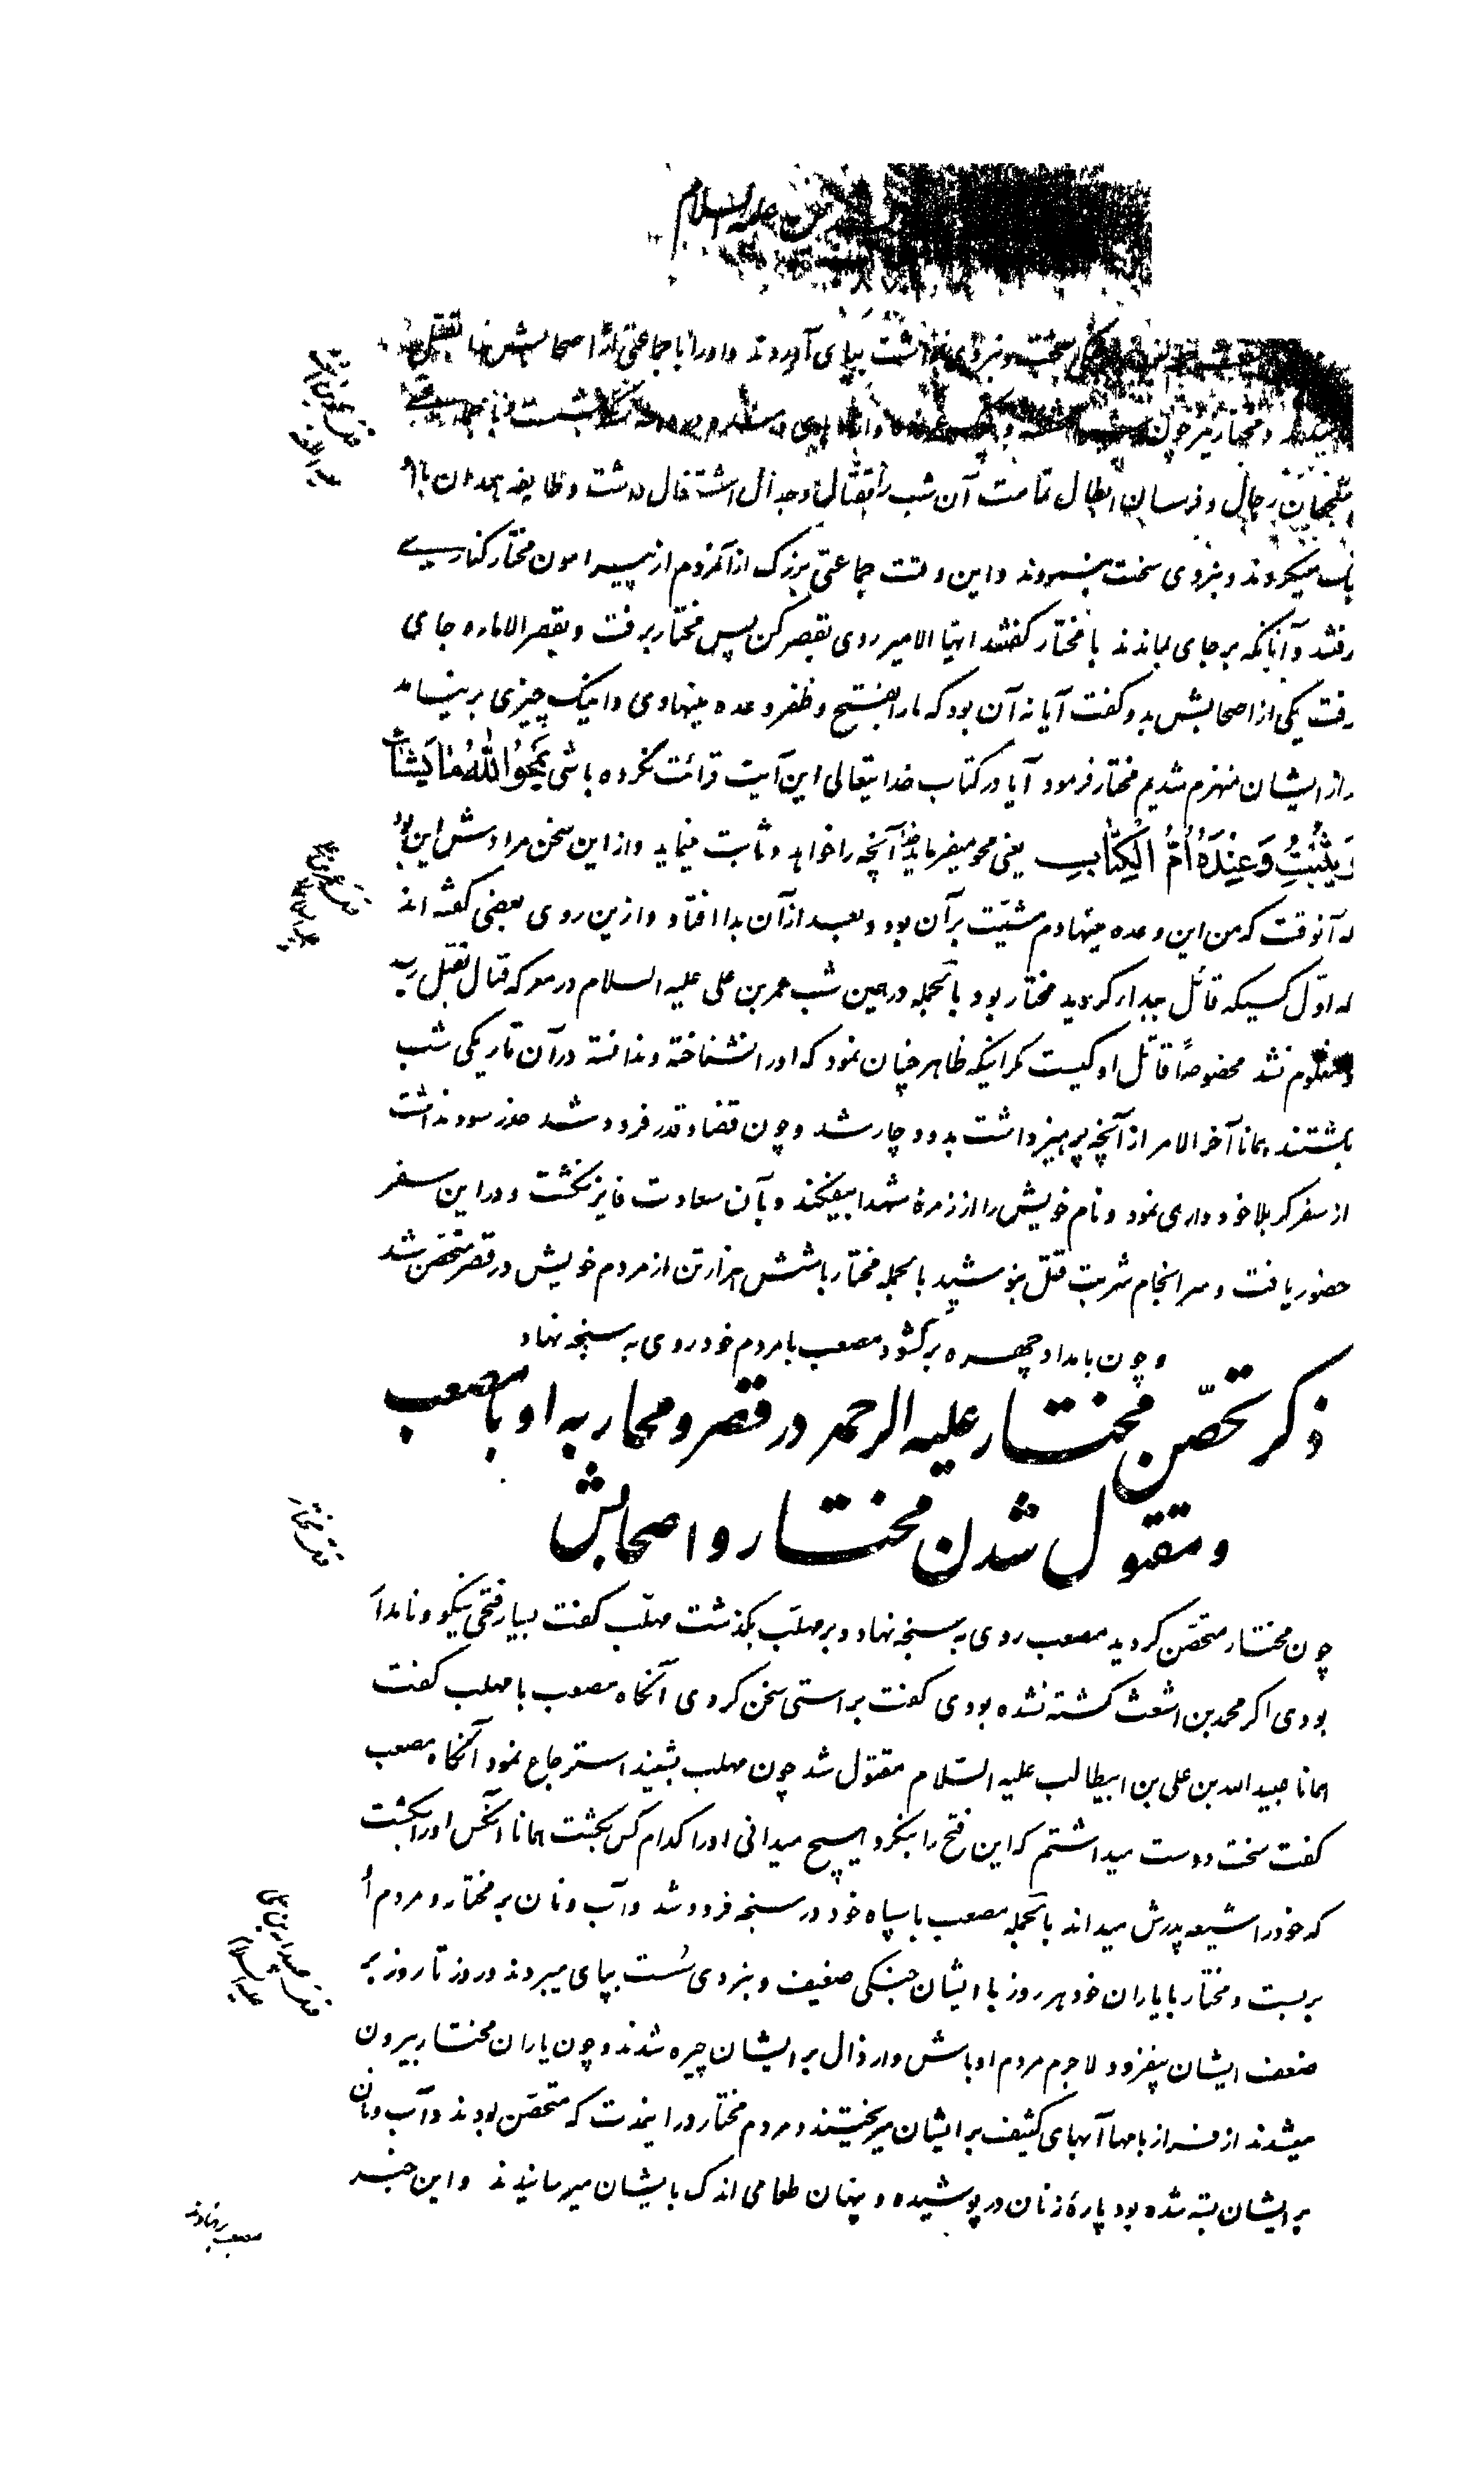 علیه السلام
سخت و نبردی درشت بپای آوردند و او را با جماعتی از اصحابش
و مختار نیز چون
شجعان رجال و فرسان ابطال تمامت آن شب را بقتال و جدال اشتغال داشت و طایفه همدان با او
میکردند و نبردی سخت بنمودند و این وقت جماعتی بزرگ از آنمردم از پیرامون مختار کناری
رفتند و آنانکه بر جای بماندند با مختار گفتند ایها الامیر روی بقصر کن پس مختار برفت و بقصر الاماره جای
گرفت یکی از اصحابش بدو گفت آیا نه آن بود که ما را بفتح و ظفر وعده مینهادی و اینک چیزی بر نیامد
از ایشان منهزم شدیم مختار فرمود آیا در کتاب خدایتعالی این آیت قرائت نکرده باشی یَمْحُوا اللّٰهُ مٰا یَشٰاءُ
وَ یُثْبِتُ وَ عِنْدَهُ اُمُّ الْکِتٰابِ یعنی محو میفرماید خدا آنچه را خواهد و ثابت مینماید و از این سخن مرادش این بود
که آنوقت که من این وعده مینهادم مشیّت بر آن بود و بعد از آن بدا افتاد و ازین روی بعضی گفته اند
که اوّل کسیکه قائل ببدا گردید مختار بود بالجمله در همین شب عمر بن علی علیه السلام در معرکه قتال بقتل رسید
و معلوم نشد مخصوصاً قاتل او کیست مگر اینکه ظاهر چنان نمود که او را نشناخته و ندانسته در آن تاریکی شب
بکشتند همانا آخر الامر از آنچه پرهیز داشت بدو دچار شد و چون قضا و قدر فرود شد حذر سود نداشت
از سفر کربلا خودداری نمود و نام خویش را از زمرهٔ شهدا بیفکند و بآن سعادت فایز نگشت و در این سفر
حضور یافت و سرانجام شربت قتل بنوشید بالجمله مختار با شش هزار تن از مردم خویش در قصر متحصّن شد
و چون بامداد چهره برگشود مصعب با مردم خود روی به سبخه نهاد
ذکر تحصّن مختار علیه الرحمه در قصر و محاربه او با مصعب
و مقتول شدن مختار و اصحابش
قتل مختار
چون مختار متحصّن گردید مصعب روی به سبخه نهاد و بر مهلّب بگذشت مهلّب گفت بسیار فتحی نیکو و نامدار
بودی اگر محمد بن اشعث کشته نشده بودی گفت براستی سخن کردی آنگاه مصعب با مهلب گفت
همانا عبیدالله بن علی بن ابیطالب علیه السّلام مقتول شد چون مهلب بشنید استرجاع نمود آنگاه مصعب
گفت سخت دوست میداشتم که این فتح را بنگرد هیچ میدانی او را کدام کس بکشت همانا آنکس او را بکشت
که خود را شیعه پدرش میداند بالجمله مصعب با سپاه خود در سبخه فرود شد و آب و نان بر مختار و مردم او
بر بست و مختار با یاران خود هر روز با ایشان جنگی ضعیف و نبردی سُست بپای میبردند و روز تا روز بر
ضعف ایشان بیفزود لاجرم مردم اوباش و ارذال بر ایشان چیره شدند و چون یاران مختار بیرون
میشدند از فراز بامها آبهای کثیف بر ایشان میریختند و مردم مختار در اینمدت که متحصّن بودند و آب و نان
بر ایشان بسته شده بود پارهٔ زنان در پوشیده و پنهان طعامی اندک بایشان میرسانیدند و این خبر